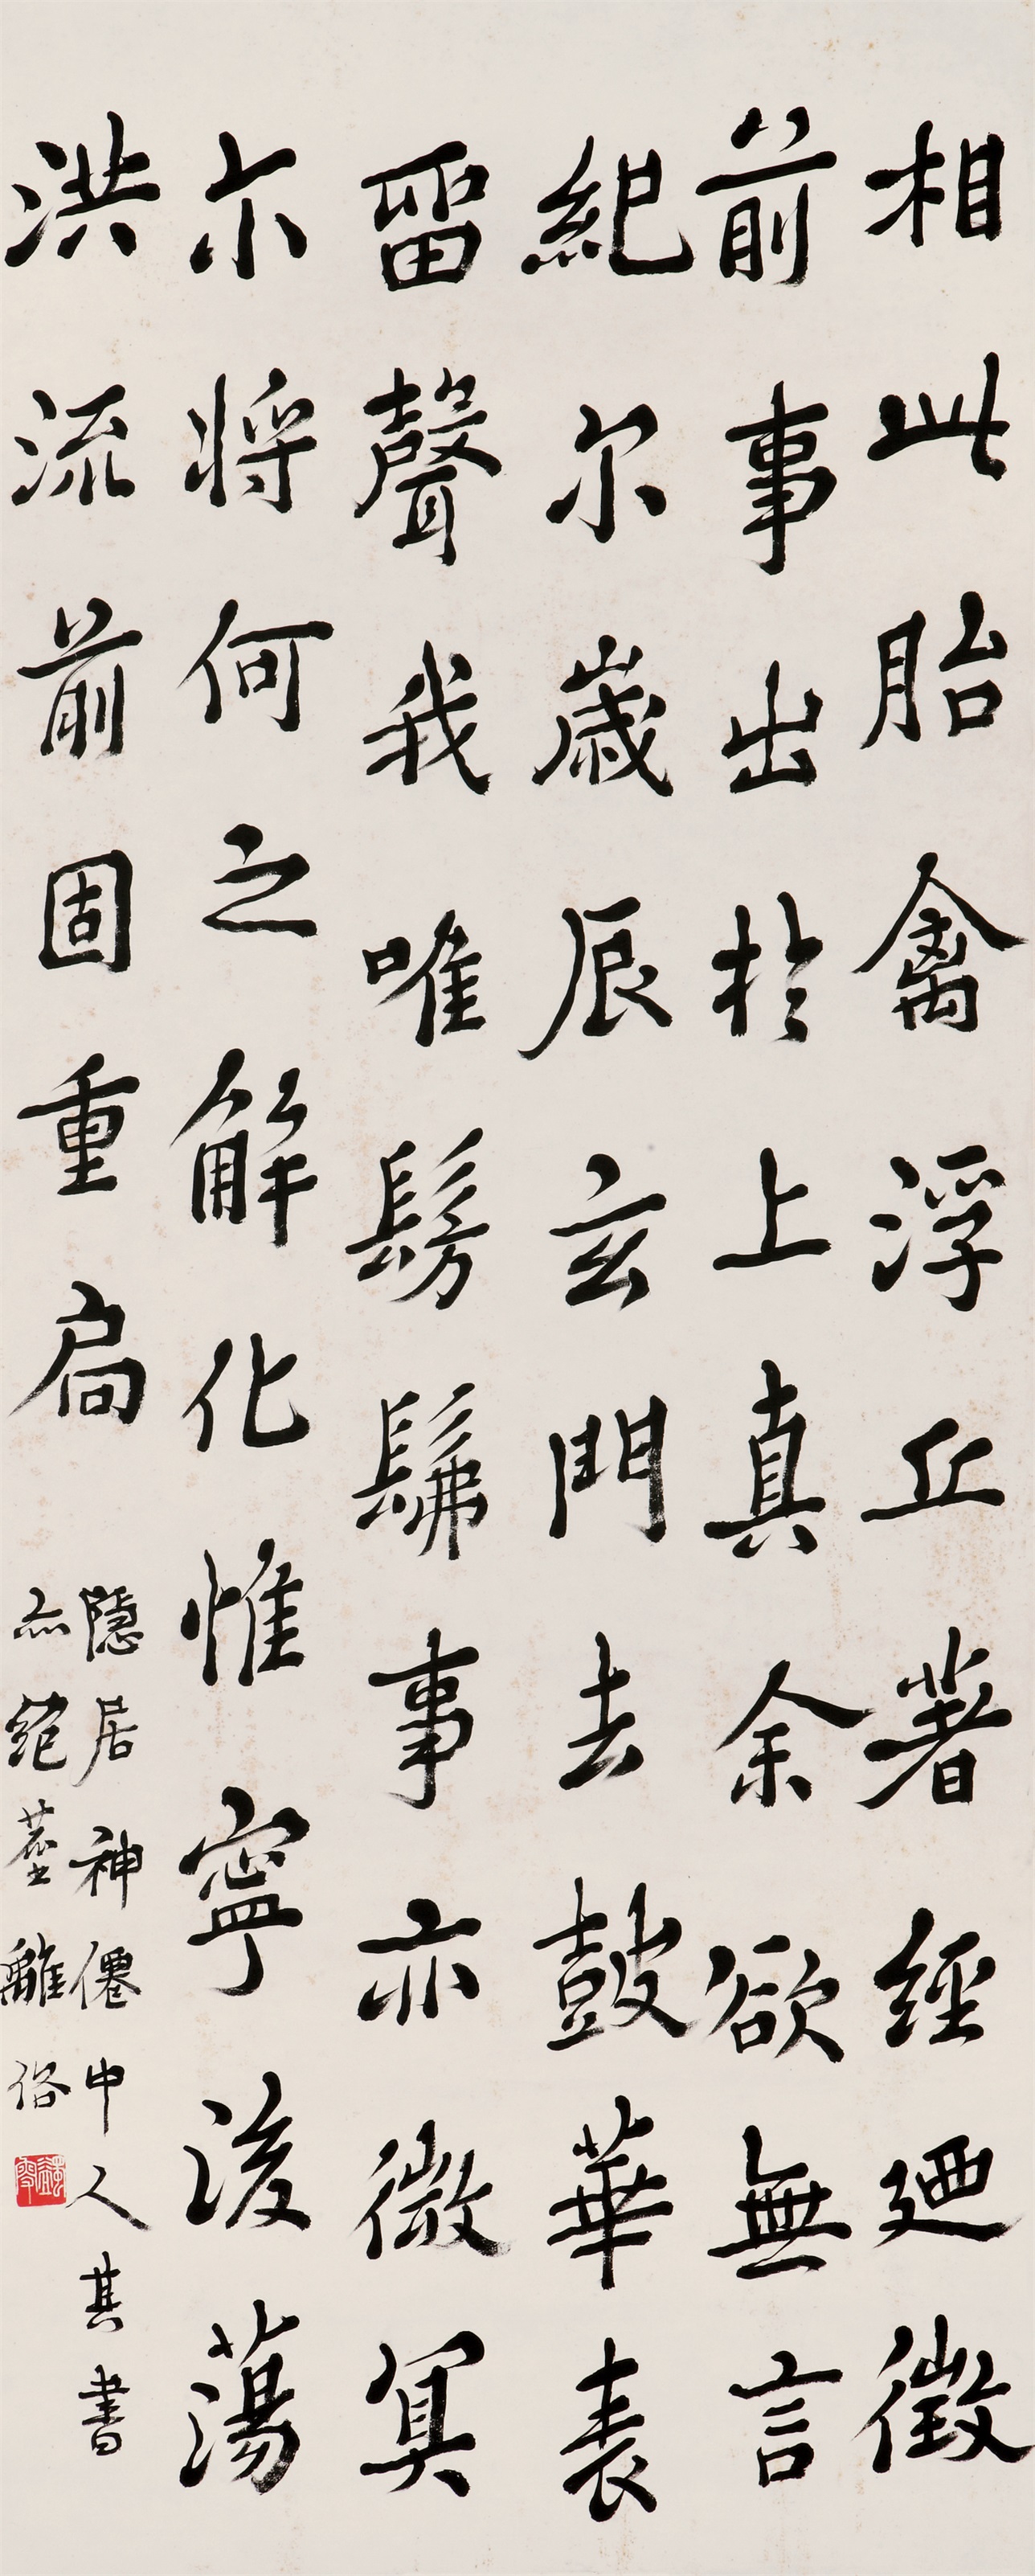 相此胎禽浮丘著經迺徵
前事出於上真余欲無言
紀尔歲辰玄門去鼓華表
留聲我唯髣髴事亦微冥
尔將何之解化惟寧後蕩
洪流前固重扃
隱居神僊中人其書
亦絕塵離俗